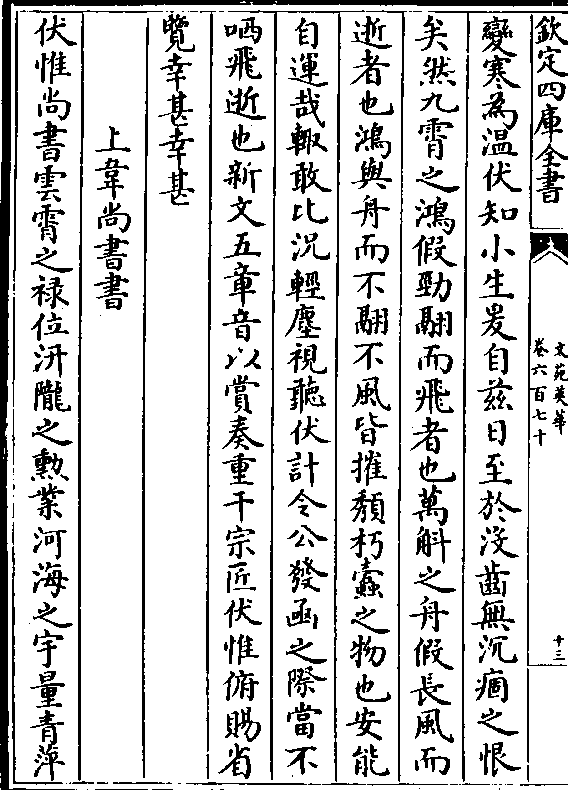 欽定四庫全書
文苑英華
卷六百七十
十三
變寒為温伏知小生爰自兹日至於没齒無沉痼之恨
矣然九霄之鴻假勁翮而飛者也萬斛之舟假長風而
逝者也鴻與舟而不翮不風皆摧頽朽蠹之物也安能
自運哉輙敢比況輕塵視聽伏計令公發函之際當不
哂飛逝也新文五章音以賞奏重干宗匠伏惟俯賜省
覽幸甚幸甚
上韋尚書書
伏惟尚書雲霄之禄位汧隴之勲業河海之宇量青萍